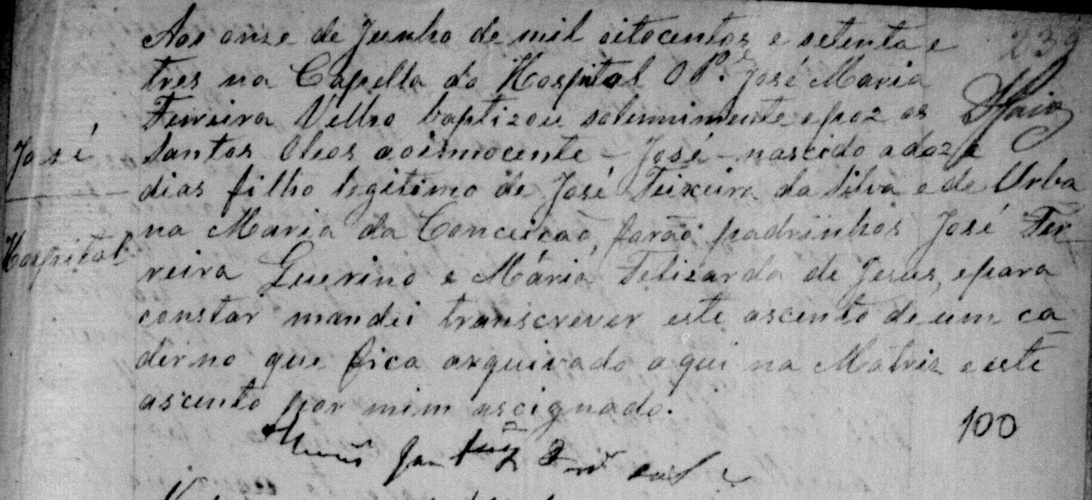 Aos onze de Junho de mil oitocentos e setenta e
239
tres na Capella do Hospital O Pe. José Maria
Ferreira Velho baptizou solennimente e poz os
José
Santos Oleos ao innocente - José - nascido a doze
dias filho legitimo de José Teixeira da Silva e de Urba
Hospital
na Maria da Conceicão, forão padrinhos José Fer
reira Guerino e Maria Felizarda de Jesus, e para
constar mandei transcrever este ascento de um ca
derno que fica arquivado aqui na Matriz e este
ascento por mim assignado.
100